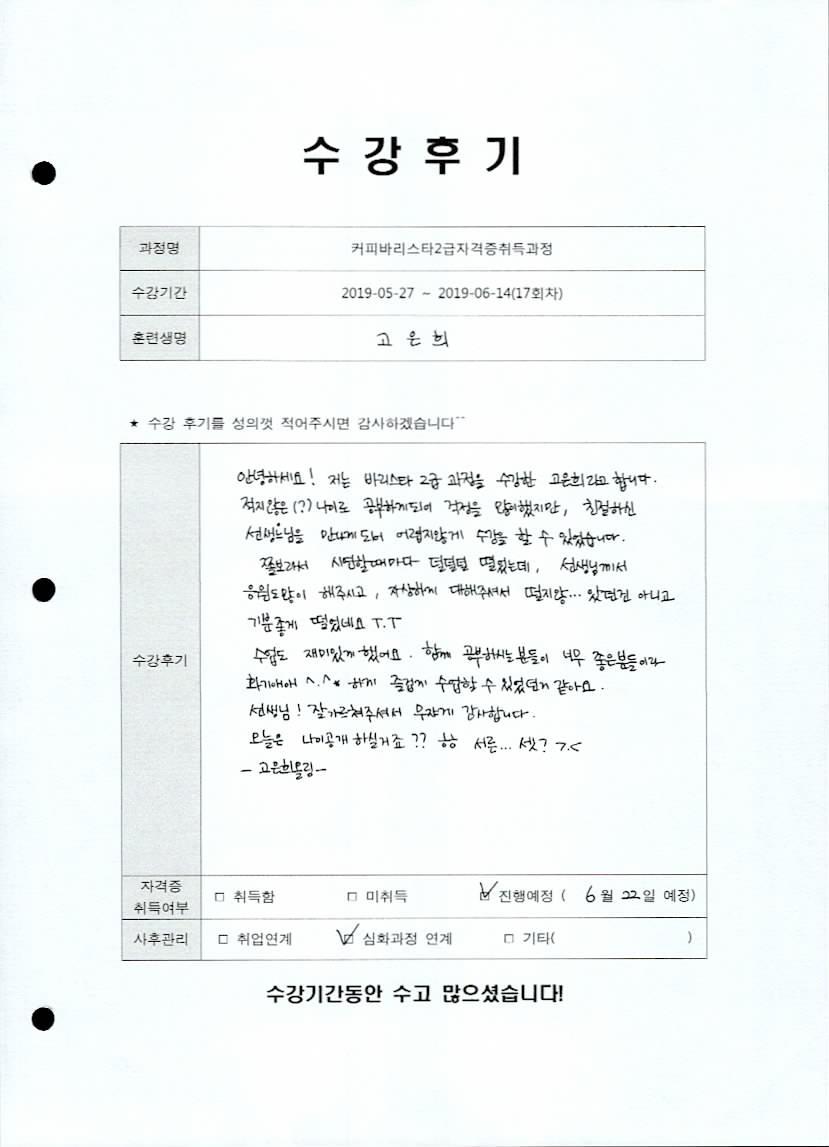 수 강 후 기
과정명 커피바리스타2급자격증취득과정
수강기간 2019-05-27 ~ 2019-06-14(17회차)
훈련생명 고 은 희
★ 수강 후기를 성의껏 적어주시면 감사하겠습니다^^
안녕하세요! 저는 바리스타 2급 과정을 수강한 고은희라고 합니다.
적지않은(?) 나이로 공부하게되어 걱정을 많이했지만, 친절하신
선생님을 만나게 되어 어렵지않게 수강을 할 수 있었습니다.
쫄보라서 시연할때마다 덜덜덜 떨었는데, 선생님께서
응원도많이 해주시고, 자상하게 대해주셔서 떨지않... 았던건 아니고
기분좋게 떨었네요 T.T
수업도 재미있게했어요. 함께 공부하시는분들이 너무 좋은분들이라
수강후기
화기애애 ^.^* 하게 즐겁게 수업할 수 있었던거 같아요.
선생님! 잘가르쳐주셔서 무쟈게 감사합니다.
오늘은 나이공개 하실거죠?? ㅎㅎ 서른... 셋? >.<
- 고은희올림-
자격증
취득여부 □ 취득함 □ 미취득 ☑ 진행예정 ( 6월 22일 예정)
사후관리 □ 취업연계 ☑ 심화과정 연계 □ 기타( )
수강기간동안 수고 많으셨습니다!